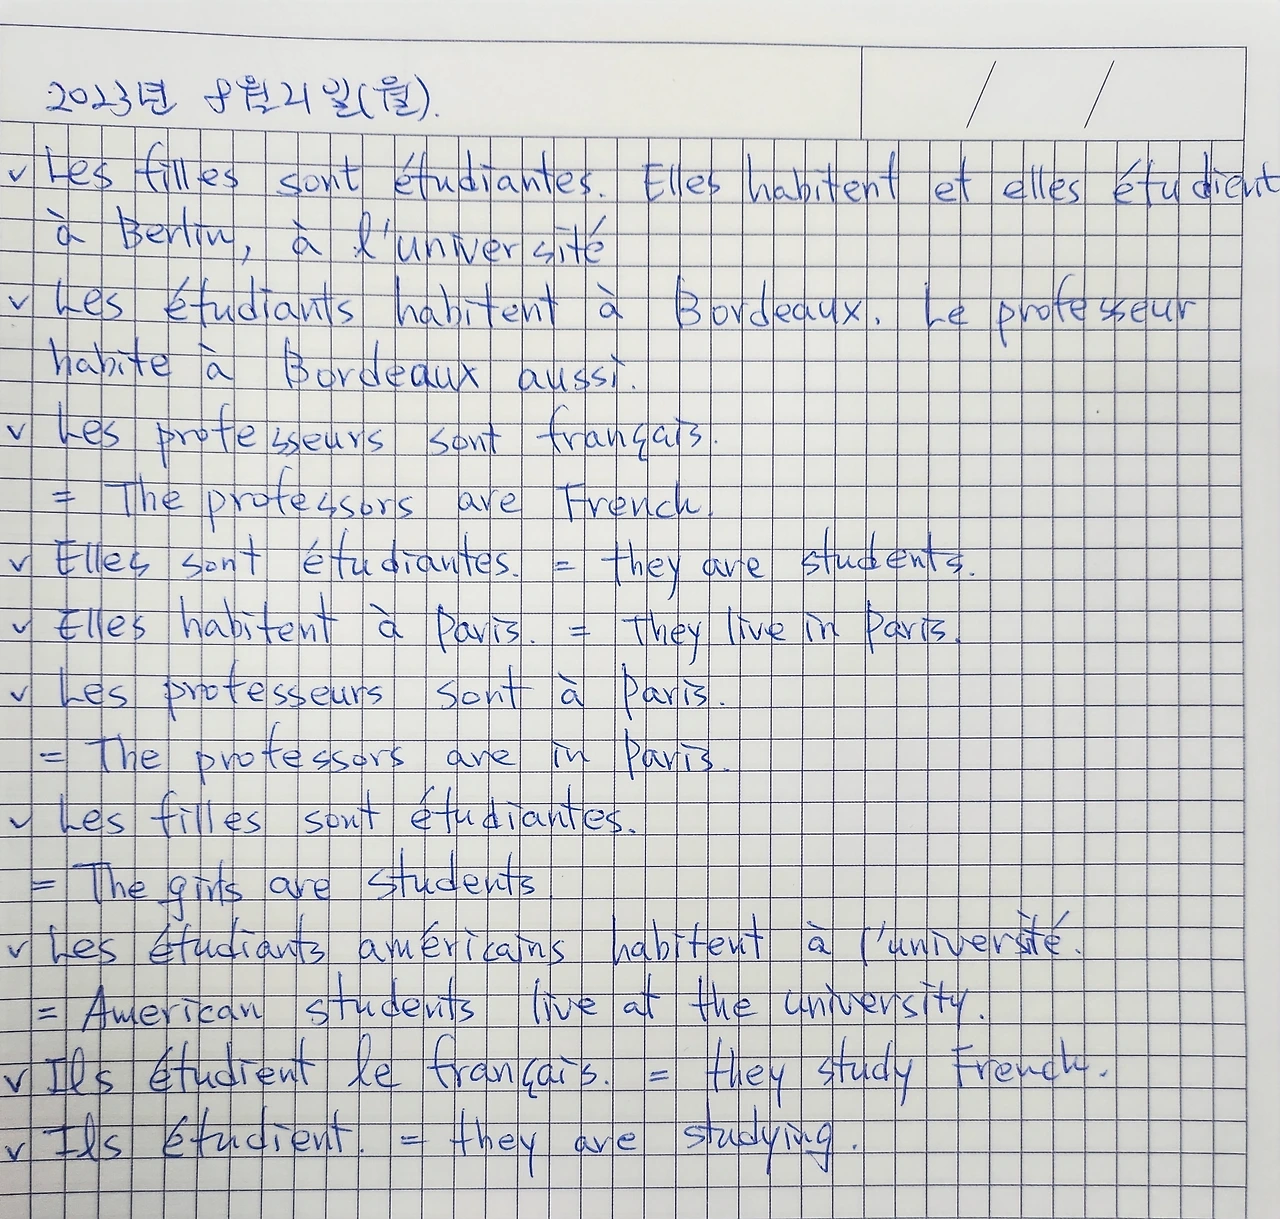 2023년 8월 21일(월).
v Les filles sont étudiantes. Elles habitent et elles étudient
à Berlin, à l'université
v Les étudiants habitent à Bordeaux. Le professeur
habite à Bordeaux aussi.
v Les professeurs sont français.
= The professors are French.
v Elles sont étudiantes. = they are students.
v Elles habitent à Paris. = They live in Paris.
v Les professeurs sont à Paris.
= The professors are in Paris.
v Les filles sont étudiantes.
= The girls are students
v Les étudiants américains habitent à l'université.
= American students live at the university.
v Ils étudient le français. = they study French.
v Ils étudient. = they are studying.